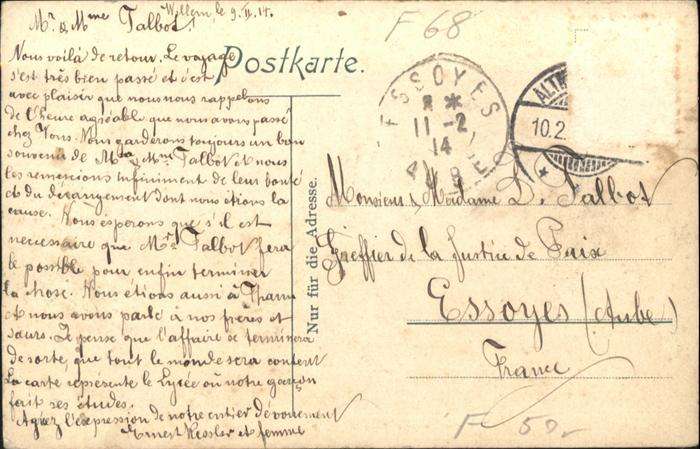 Willern, le 9. II. 14.
Mr & Mme Talbot!
Nous voilà de retour. Le voyage
s'est très bien passé et c'est
avec plaisir que nous nous rappelons
de l'heure agréable que nous avons passé
chez Vous. Nous garderons toujours un bon
souvenir de Mr & Mme Talbot et nous
les remercions infiniment de leur bonté
et du dérangement dont nous étions la
cause. Nous esperons que s'il est
necessaire que Mr Talbot fera
le possible pour enfin terminer
la chose. Nous étions aussi à Thann
et nous avons parlé à nos frères et
sœurs. Je pense que l'affaire se terminera
de sorte, que tout le monde sera content
La carte représente le Lycée où notre garçon
fait ses études.
Agréez l'expression de notre entier dévouement
Ernest Kessler et femme
Postkarte.
Nur für die Adresse.
F 68
ESSOYES
11 -2
14
ALTK
10.2
Monsieur & Madame D. Talbot
Greffier de la Justice de Paix
Essoyes (Aube)
France
F 50.-